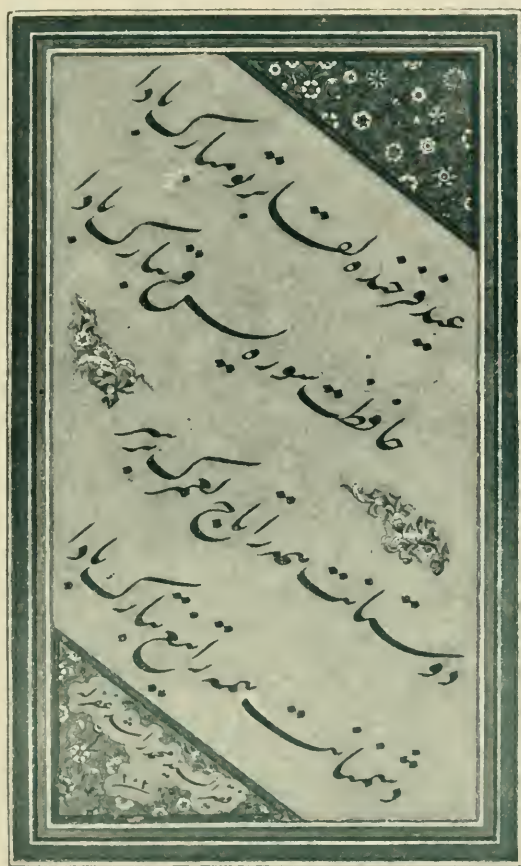 عید فرخنده لقا بر تو مبارک بادا
حافظت سوره یس و تبارک بادا
دوستانت همه را تاج لعمرک بر سر
دشمنانت همه را تیغ بتارک بادا